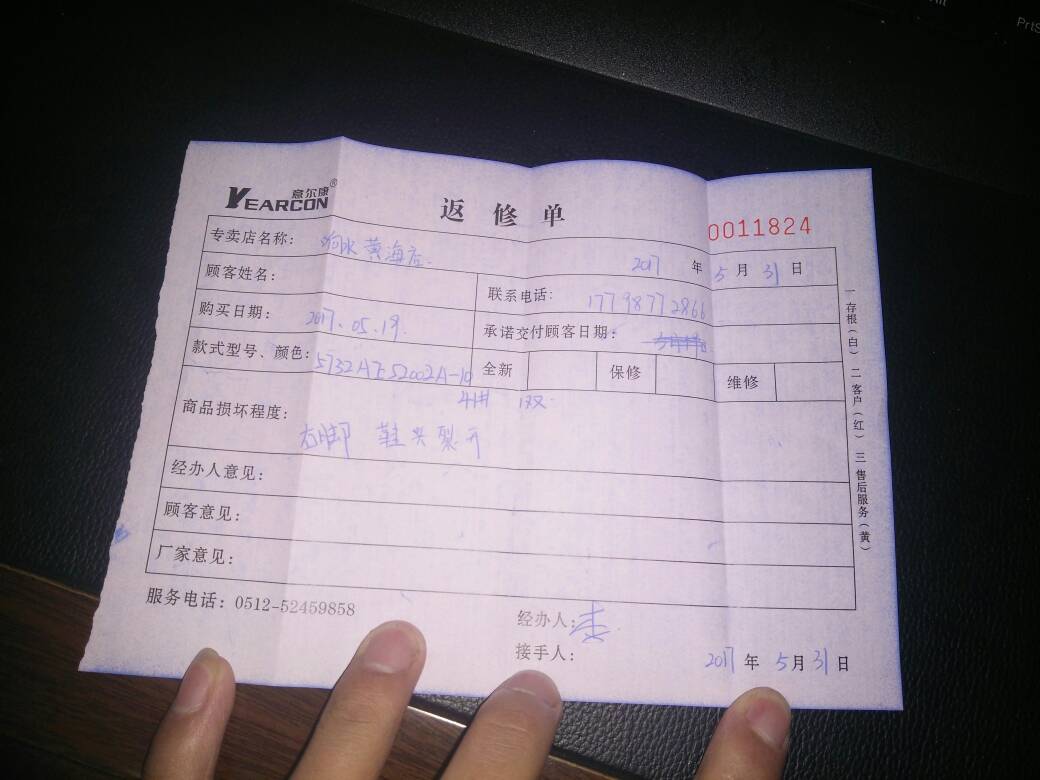 意尔康®
YEARCON
返修单
0011824
专卖店名称: 响水黄海店
2017 年 5 月 31 日
顾客姓名:
联系电话: 17798772866
购买日期: 2017.05.19.
承诺交付顾客日期:
款式型号、颜色: 5732A7552002A-10
全新 保修 维修
41# 1双
商品损坏程度:
右脚 鞋头裂开
经办人意见:
顾客意见:
厂家意见:
服务电话: 0512-52459858
经办人: 李
接手人:
2017 年 5 月 31 日
一存根(白) 二客户(红) 三售后服务(黄)
PrtS